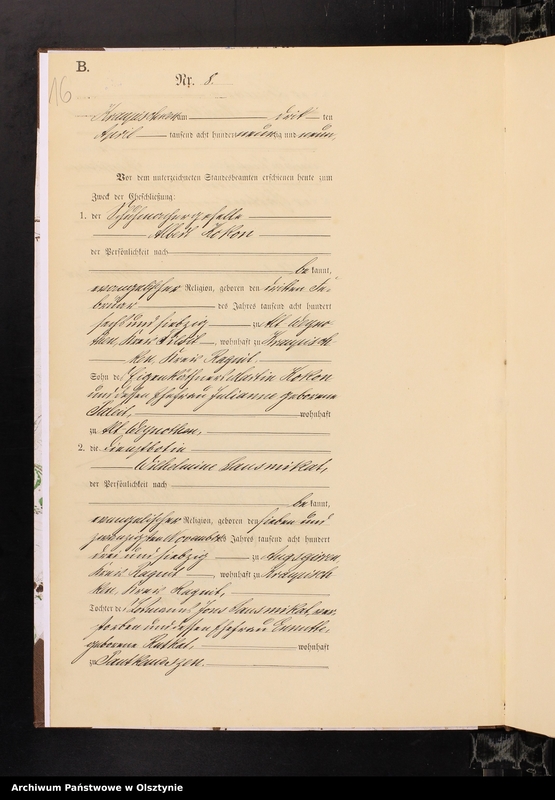 B.
16
Nr. 8.
Kraupischken am dritten
April tausend acht hundert neunzig und neun
Vor dem unterzeichneten Standesbeamten erschienen heute zum
Zweck der Eheschließung:
1. der Schuhmachergeselle
Albert Kokon
der Persönlichkeit nach
be kannt,
evangelischer Religion, geboren den dritten Fe-
bruar des Jahres tausend acht hundert
sechs und siebzig zu Alt Weyno-
then, Kreis Tilsit, wohnhaft zu Kraupisch
ken, Kreis Ragnit.
Sohn des Eigenkäthners Martin Kokon
und dessen Ehefrau Julianne geborene
wohnhaft
zu Alt Weynothen,
2. die Dienstbotin
Wilhelmine
der Persönlichkeit nach
be kannt,
evangelischer Religion, geboren den sieben und
zwanzigsten November des Jahres tausend acht hundert
drei und siebzig zu
Kreis Ragnit, wohnhaft zu Kraupisch
ken, Kreis Ragnit,
Tochter des Losmanns Jons ver-
storben und dessen Ehefrau Enutte,
geborene wohnhaft
zu
Archiwum Państwowe w Olsztynie